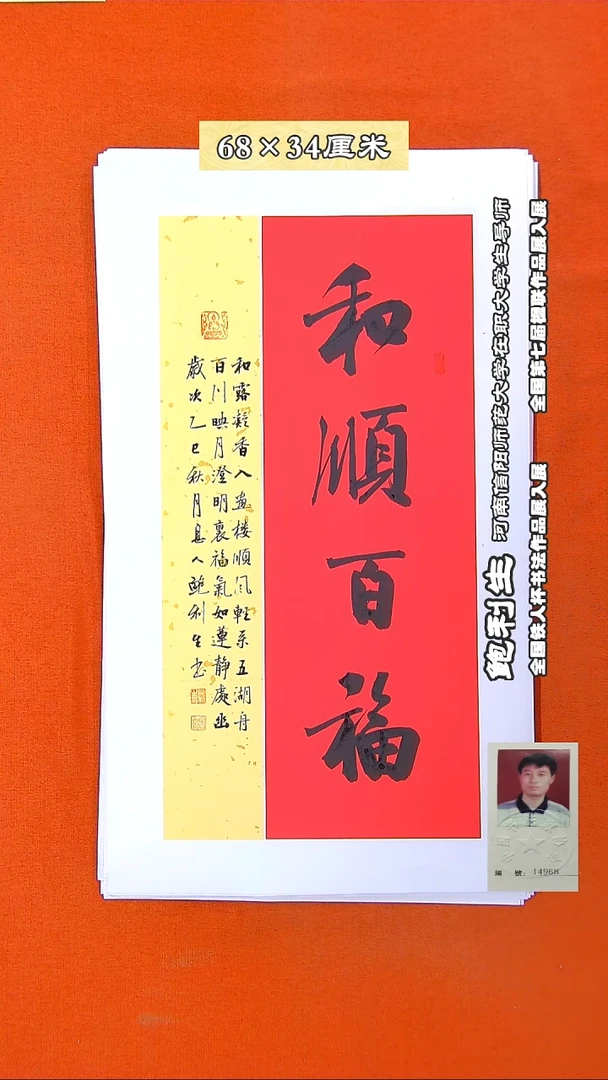 68×34厘米
和順百福
和露凝香入畫楼順風輕系五湖舟
百川映月澄明裏福氣如蓮静處幽
歲次乙巳秋月息人鲍利生书
鲍利生
河南信阳师范大学在职大学生导师
全国第七届楹联作品展入展
全国铁人杯书法作品展入展
編 號：14968